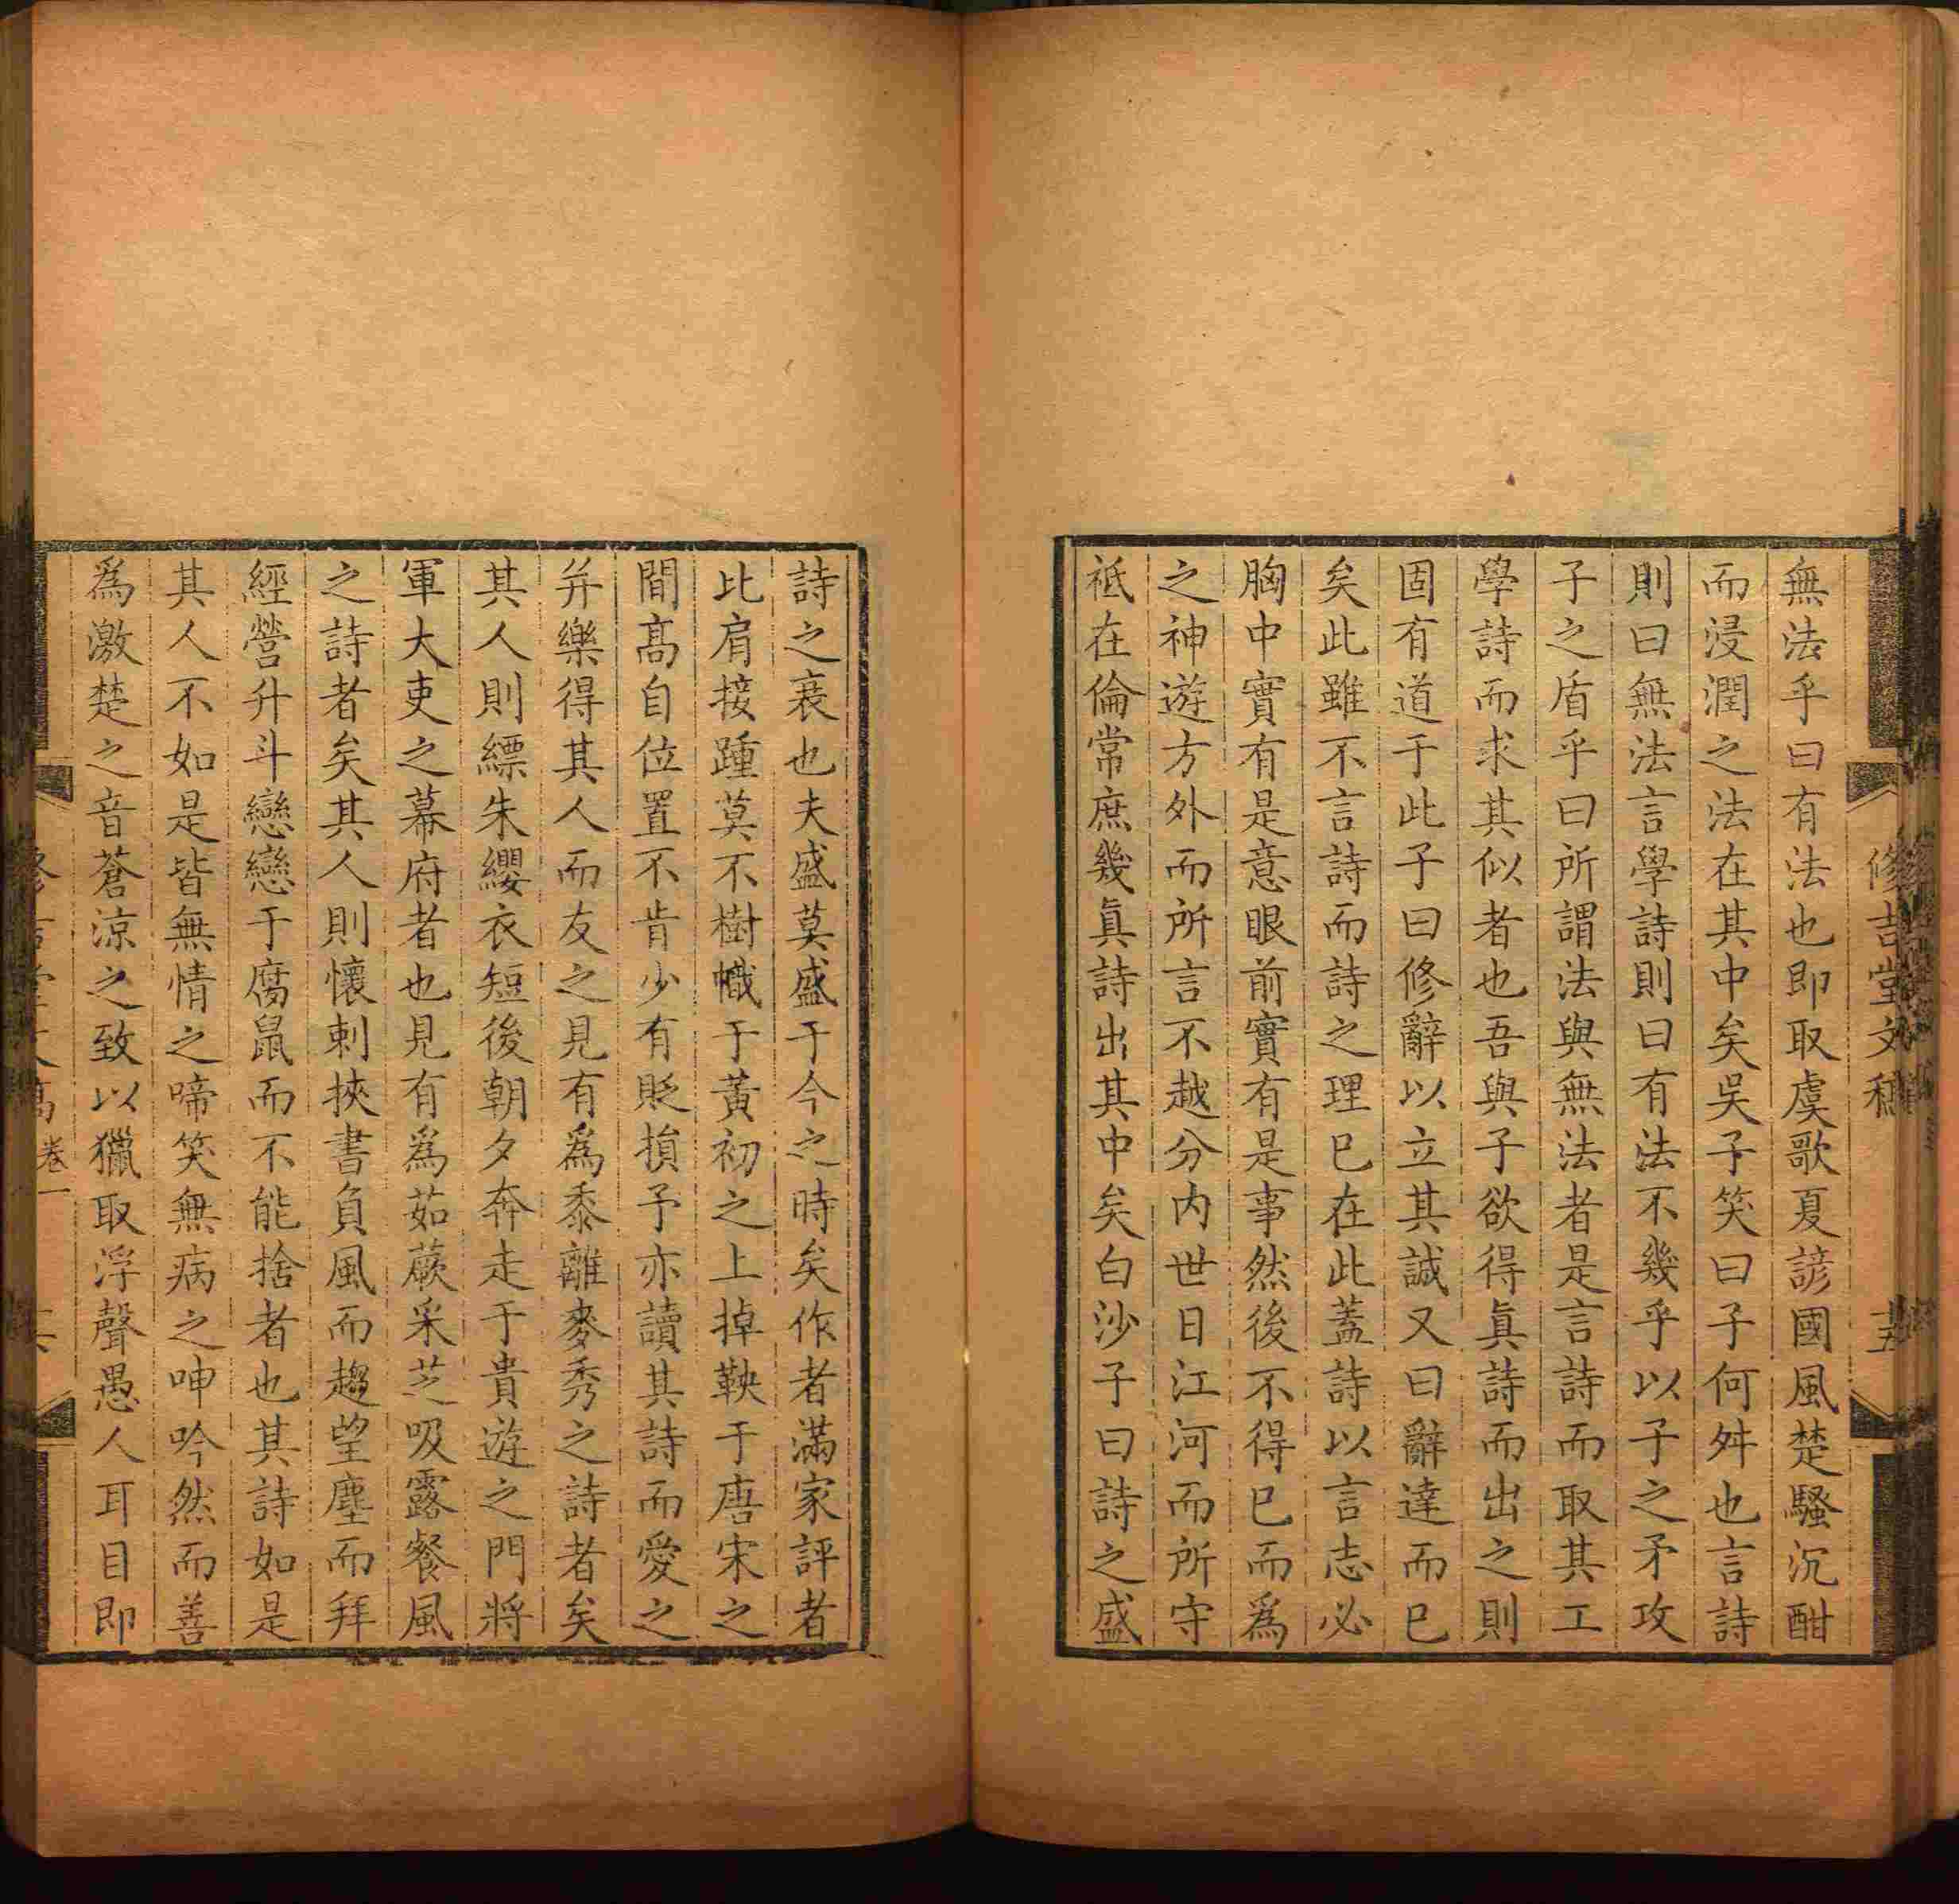 修吉堂文稿 十五
無法乎曰有法也即取虞歌夏諺國風楚騷沉酣
而浸潤之法在其中矣吳子笑曰子何舛也言詩
則曰無法言學詩則曰有法不幾乎以子之矛攻
子之盾乎曰所謂法與無法者是言詩而取其工
學詩而求其似者也吾與子欲得眞詩而出之則
固有道于此子曰修辭以立其誠又曰辭達而已
矣此雖不言詩而詩之理已在此蓋詩以言志必
胸中實有是意眼前實有是事然後不得已而爲
之神遊方外而所言不越分内世日江河而所守
祗在倫常庶幾眞詩出其中矣白沙子曰詩之盛
詩之衰也夫盛莫盛于今之時矣作者滿家評者
比肩接踵莫不樹幟于黃初之上掉鞅于唐宋之
間高自位置不肯少有貶損予亦讀其詩而愛之
并樂得其人而友之見有爲黍離麥秀之詩者矣
其人則縹朱纓衣短後朝夕奔走于貴遊之門將
軍大吏之幕府者也見有爲茹蕨采芝吸露餐風
之詩者矣其人則懷刺挾書負風而趨望塵而拜
經營升斗戀戀于腐鼠而不能捨者也其詩如是
其人不如是皆無情之啼笑無病之呻吟然而善
爲激楚之音蒼涼之致以獵取浮聲愚人耳目即
卷一